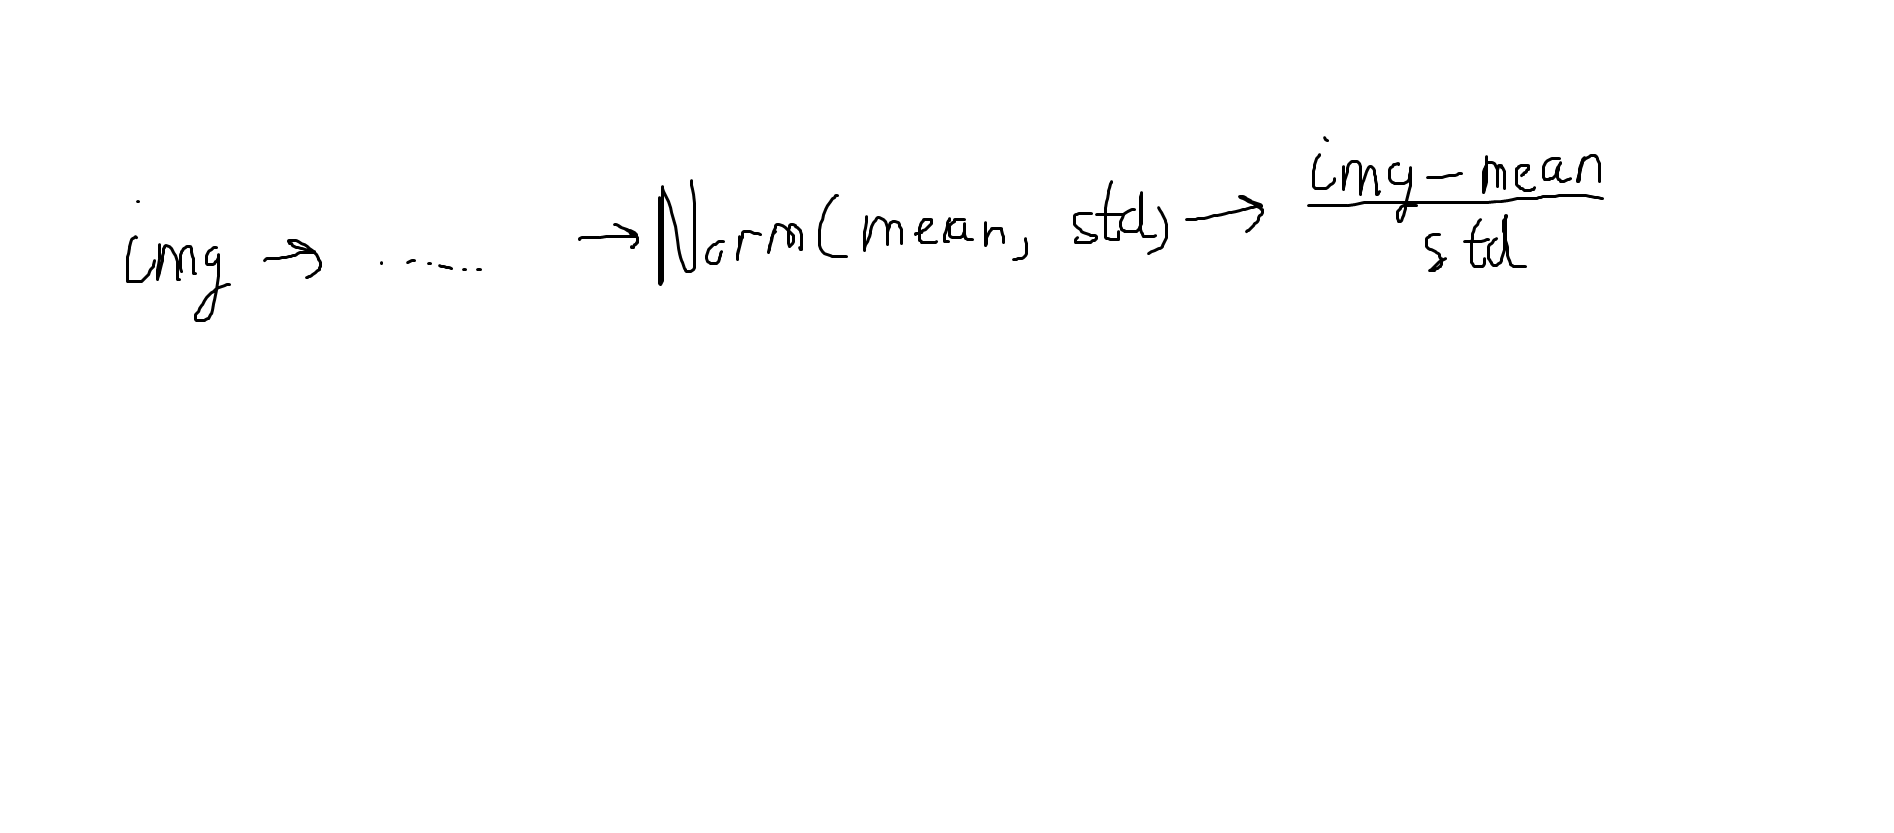 img → ...... → Norm(mean, std) → img - mean
std